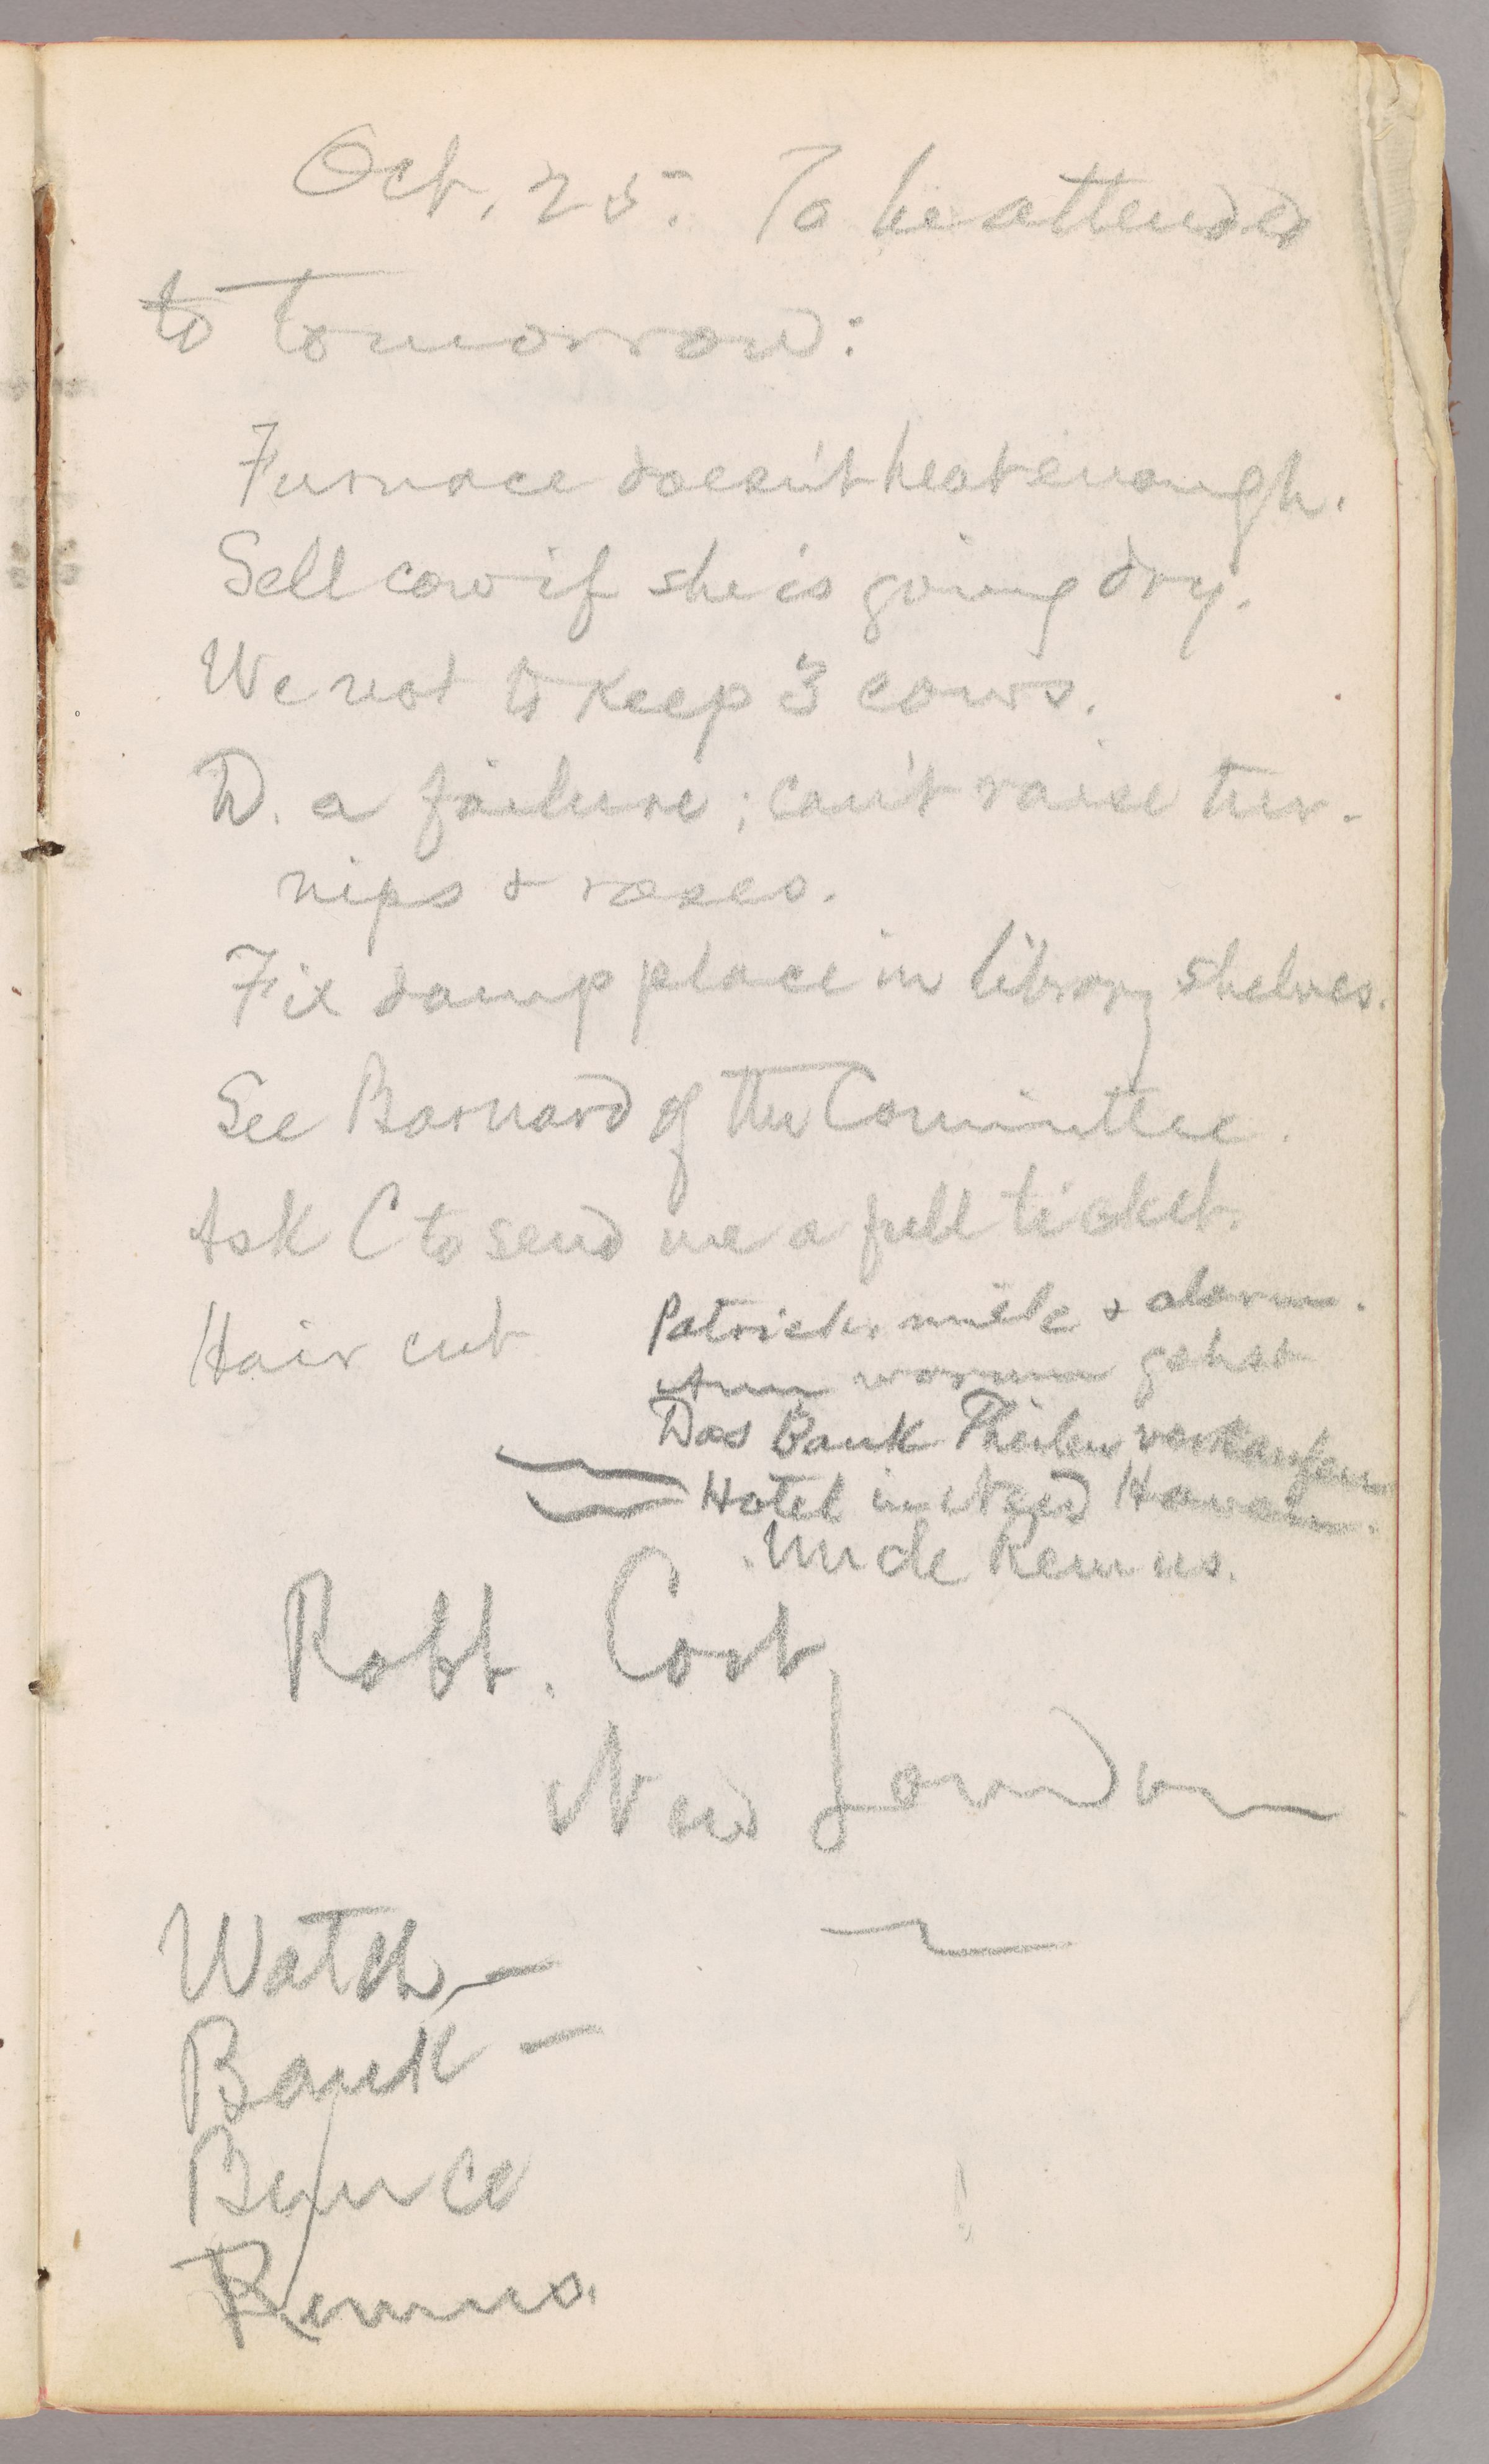 Oct. 25. To be attended
to tomorrow:
Furnace doesn't heat enough.
Sell cow if she is going dry.
We not to keep 3 cows.
D. a failure; can't raise tur-
nips & roses.
Fix damp place in library shelves.
See Barnard of the Committee.
Ask C to send me a full ticket.
Hair cut
Patrick, milk & alarm.
Ann warum gehst
Das Bank Theilen verkaufen
Hotel in New Haven.
Uncle Remus.
Robt. Coit
New London
Watch —
Bank —
Bunce
Remus.